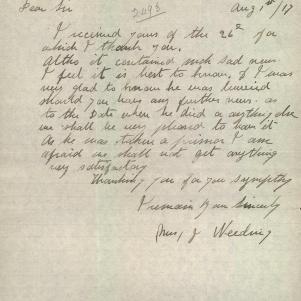 Dear Sir 2498 Aug 1st/17
I received yours of the 26th for
which I thank you.
Altho it contained such sad news
I feel it is best to know, & I was
very glad to know he was buried
should you have any further news as
to the Date when he died or anything else
we shall be very pleased to have it
As he was taken a prisoner I am
afraid we shall not get anything
very satisfactory
Thanking you for your sympathy
I remain Yours Sincerely
Mrs J Weeding